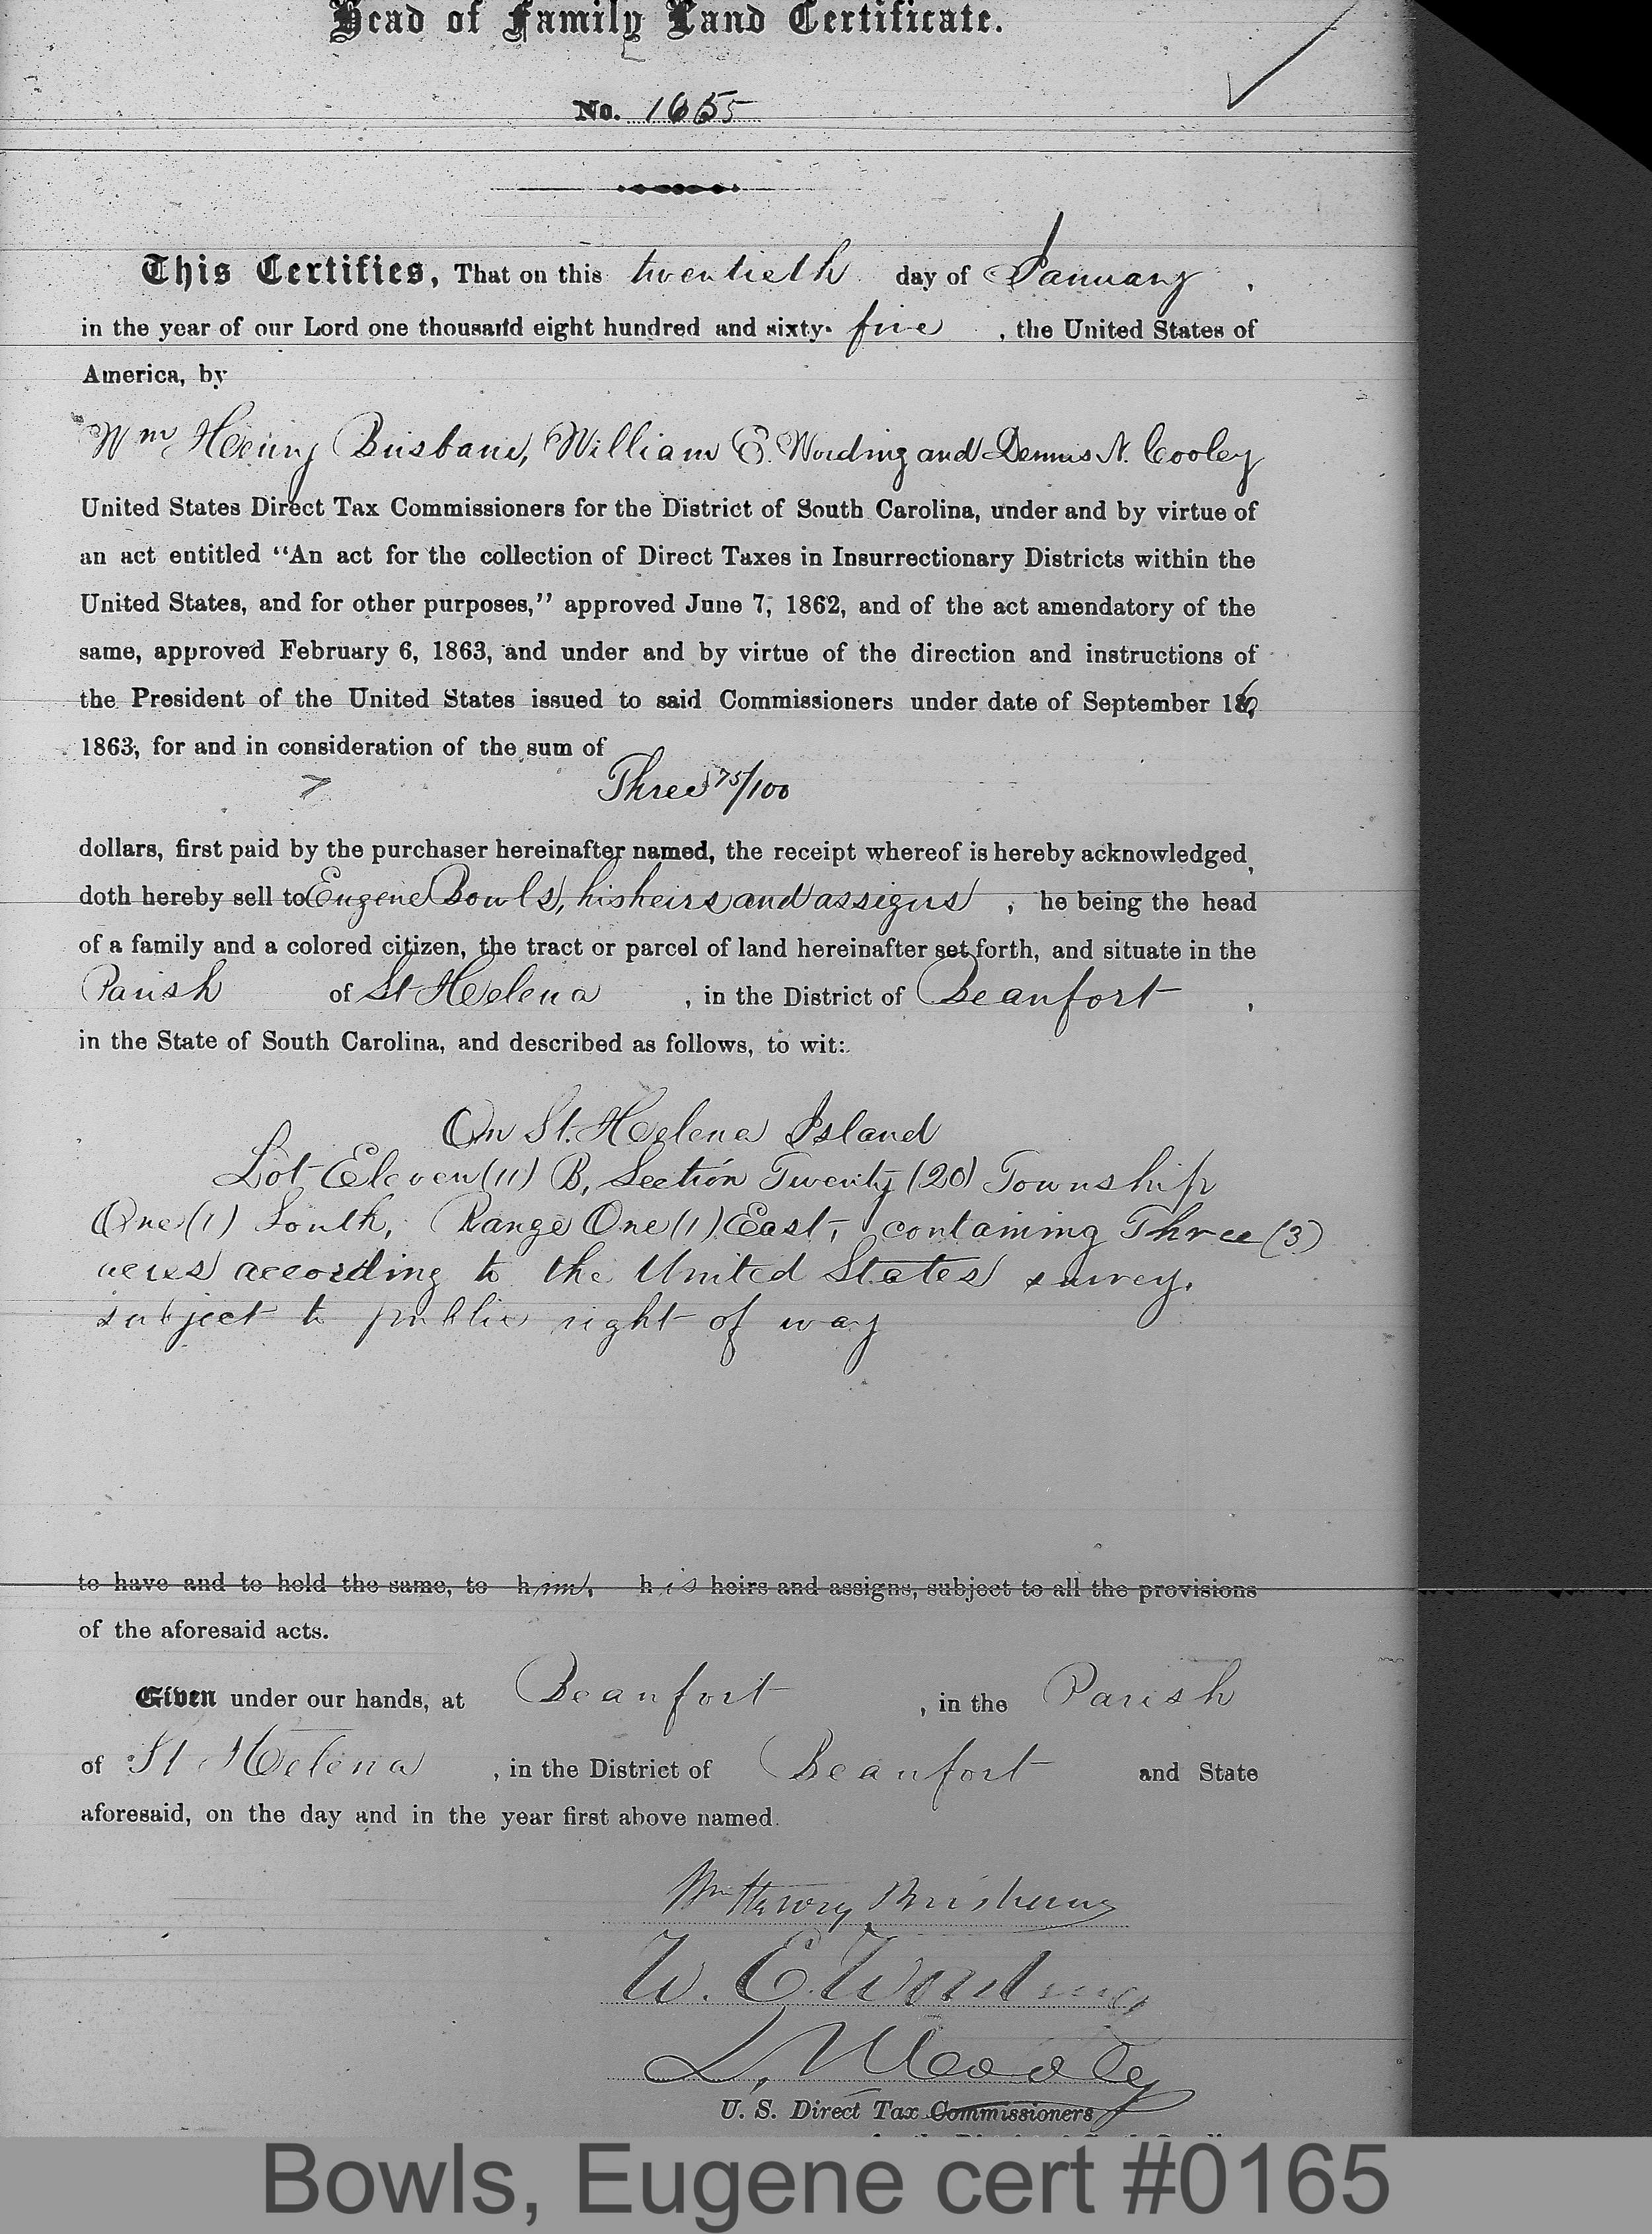 Head of Family Land Certificate.
No. 1655
This Certifies, That on this twentieth day of January,
in the year of our Lord one thousand eight hundred and sixty-five, the United States of
America, by
Wm Henry Brisbane, William E. Wording and Dennis N. Cooley
United States Direct Tax Commissioners for the District of South Carolina, under and by virtue of
an act entitled “An act for the collection of Direct Taxes in Insurrectionary Districts within the
United States, and for other purposes,” approved June 7, 1862, and of the act amendatory of the
same, approved February 6, 1863, and under and by virtue of the direction and instructions of
the President of the United States issued to said Commissioners under date of September 16,
1863, for and in consideration of the sum of
Three 75/100
dollars, first paid by the purchaser hereinafter named, the receipt whereof is hereby acknowledged,
doth hereby sell to Eugene Bowls, his heirs and assigns, he being the head
of a family and a colored citizen, the tract or parcel of land hereinafter set forth, and situate in the
Parish of St Helena, in the District of Beaufort,
in the State of South Carolina, and described as follows, to wit:
On St. Helena Island
Lot Eleven (11) B, Section Twenty (20) Township
One (1) South, Range One (1) East, containing Three (3)
acres according to the United States survey.
subject to public right of way
to have and to hold the same, to him, his heirs and assigns, subject to all the provisions
of the aforesaid acts.
Given under our hands, at Beaufort, in the Parish
of St Helena, in the District of Beaufort and State
aforesaid, on the day and in the year first above named.
Wm Henry Brisbane
W. E. Wording
D. N. Cooley
U. S. Direct Tax Commissioners
Bowls, Eugene cert #0165